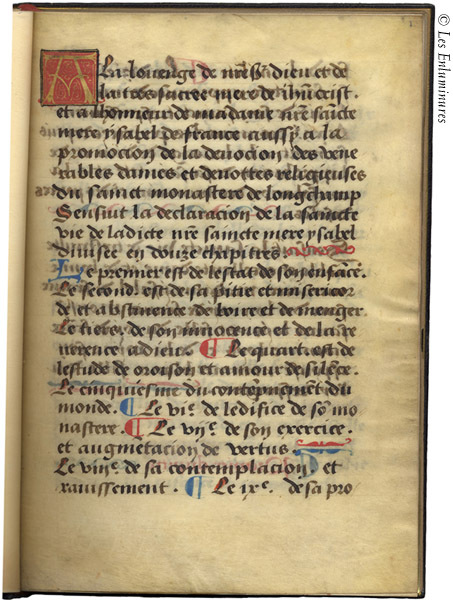 A La louenge de nr̃e Sr̃ dieu et de
la tres sacree mere de ih̃u crist.
et a lhonneur de madame nr̃e saīcte
mere ysabel de france aussy a la
promocion de la deuocion des vene
rables dames et deuottes religieuses
du sainct monastere de longchamp
Sensuit la declaracion de la saincte
vie de ladicte nr̃e saincte mere ysabel
diuisee en douze chapitres.
Le premier est de lestat de son enfāce.
Le second est de sa pitie et misericor
de et abstinence de boire et de menger.
Le tiers de son innocence et de la re
uerence a dieu. ¶ Le quart est de
lestude de oroison et amour de silēce.
Le cinquiesme du contẽpnement du
monde. ¶ Le viᵉ. de ledifice de sõ mo
nastere. ¶ Le viiᵉ. de son exercice.
et augmētacion de vertus.
Le viiiᵉ. de sa contemplacion. et
rauissement. ¶ Le ixᵉ. de sa pro
© Les Enluminures